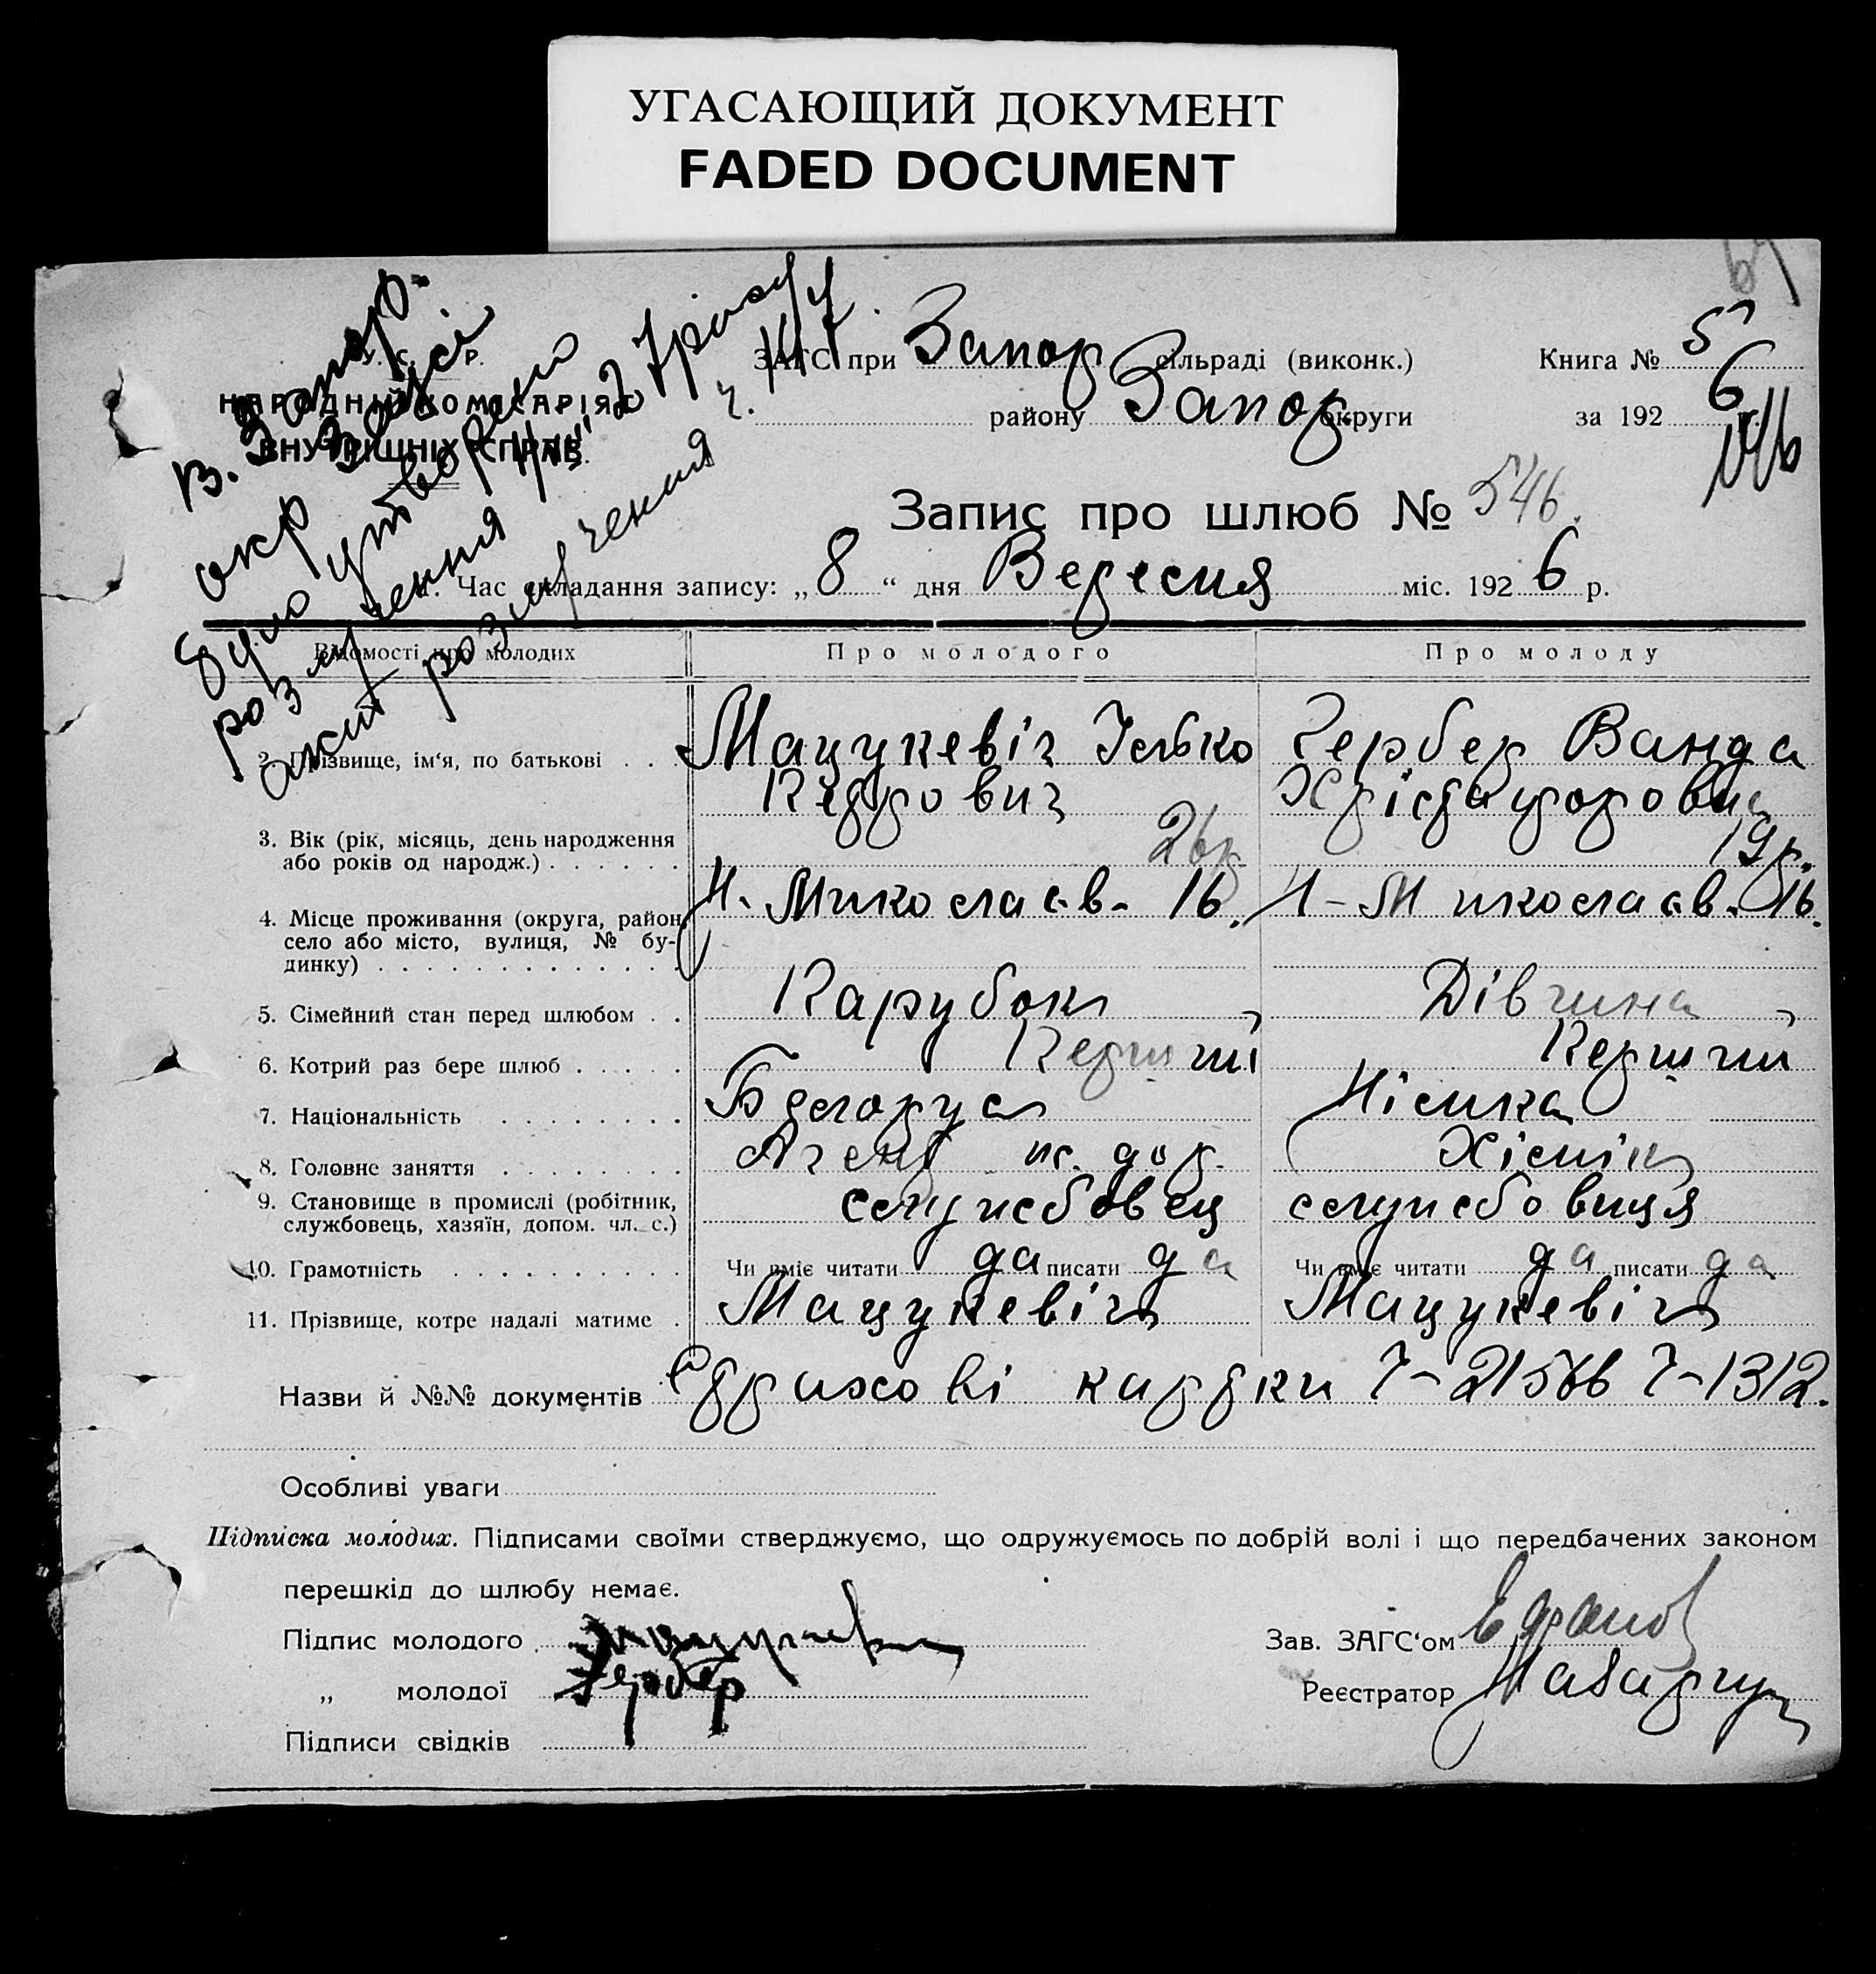 УГАСАЮЩИЙ ДОКУМЕНТ
FADED DOCUMENT
В. Запор.
окр Загсі
було утворено
розлучення
акт розлучення ч.
У. С. Р. Р.
НАРОДНИЙ КОМІСАРІЯТ
ВНУТРІШНІХ СПРАВ.
ЗАГС при Запор сільраді (виконк.) Книга № 5
району Запор. округи за 192 6 р.
Запис про шлюб № 546.
1. Час складання запису: „ 8 “ дня Вересня міс. 192 6 р.
Відомості про молодих Про молодого Про молоду
2. Прізвище, ім‘я, по батькові . . . Мацукевіч Ілько Гербер Ванда
Петрович Хрістафоровна
3. Вік (рік, місяць, день народження 26 р. 19 р.
або років од народж.) . . . . . .
4. Місце проживання (округа, район, Н. Миколаєв. 16. Н-Миколаєв. 16.
село або місто, вулиця, № бу-
динку) . . . . . . . . . . . . .
5. Сімейний стан перед шлюбом . . Парубок Дівчина
6. Котрий раз бере шлюб . . . . . Перший Перший
7. Національність . . . . . . . . Білорус Німка
8. Головне заняття . . . . . . . . Агент Хімік
9. Становище в промислі (робітник, службовець службовиця
службовець, хазяїн, допом. чл. с.)
10. Грамотність . . . . . . . . . . Чи вміє читати да писати да Чи вміє читати да писати да
11. Прізвище, котре надалі матиме . Мацукевіч Мацукевіч
Назви й №№ документів Страхові картки
Особливі уваги
Підписка молодих. Підписами своїми стверджуємо, що одружуємось по добрій волі і що передбачених законом
перешкід до шлюбу немає.
Підпис молодого Зав. ЗАГС‘ом
„ молодої Гербер Реєстратор
Підписи свідків